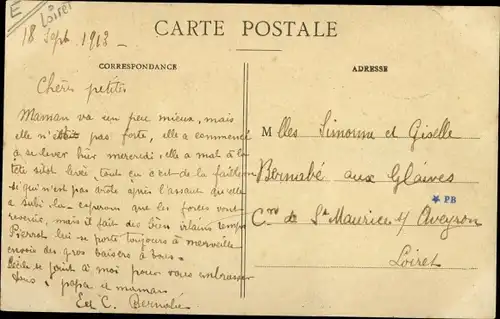 E
Loiret
CARTE POSTALE
18 Sept 1913 -
CORRESPONDANCE
Chères petites
Maman va un peu mieux, mais
elle n'était pas forte, elle a commencé
à se lever hier mercredi, elle a mal à la
tête sitôt levée, tout ça c'est de la faiblesse
ce qui n'est pas drôle après l'assaut qu'elle
a subi. Espérons que les forces vont
revenir, mais il fait des bien vilains temps
Pierrot lui se porte toujours à merveille
envoie des gros baisers à vous.
Cécile se joint à moi pour vous embrasser
papa et maman
Ed C. Bernabé
ADRESSE
Mlles Simonne et Giselle
Bernabé aux Glaives
* PB
Cne de St Maurice s/ Aveyron
Loiret